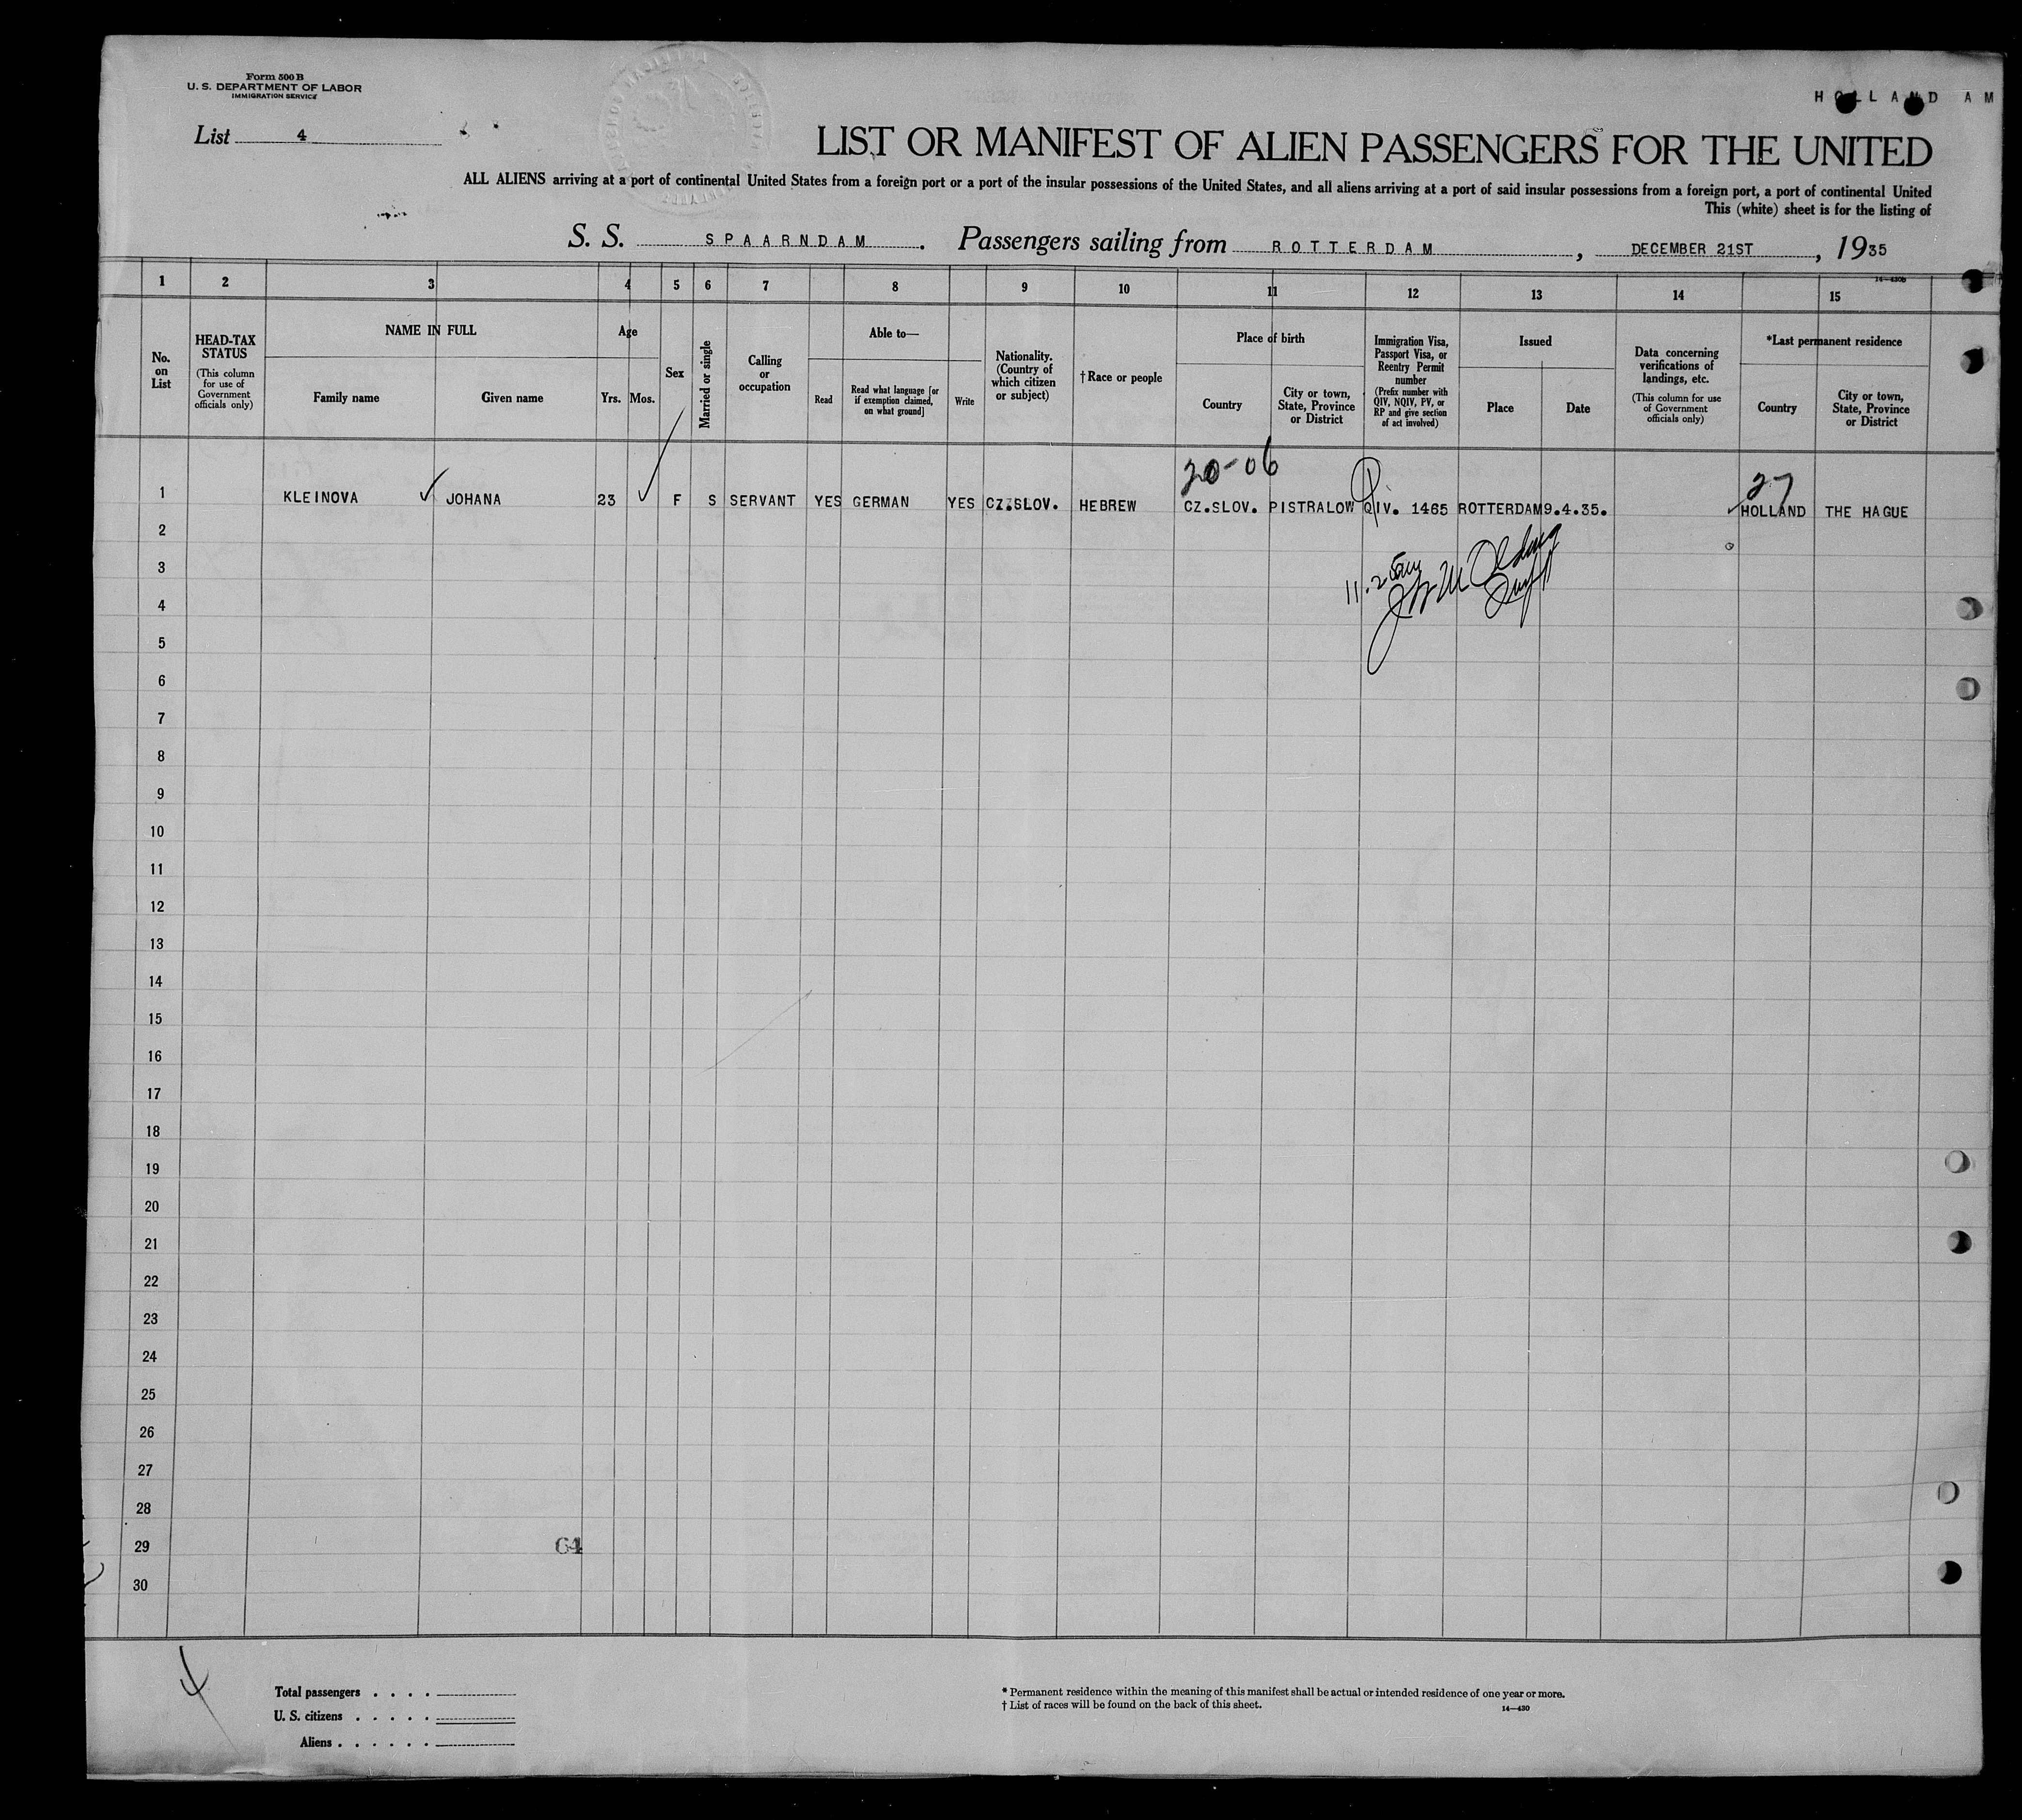 Form 500 B
U. S. DEPARTMENT OF LABOR
IMMIGRATION SERVICE
HOLLAND AM
List 4
LIST OR MANIFEST OF ALIEN PASSENGERS FOR THE UNITED
ALL ALIENS arriving at a port of continental United States from a foreign port or a port of the insular possessions of the United States, and all aliens arriving at a port of said insular possessions from a foreign port, a port of continental United
This (white) sheet is for the listing of
S. S. SPAARNDAM. Passengers sailing from ROTTERDAM, DECEMBER 21ST, 1935
14—430b
1 2 3 4 5 6 7 8 9 10 11 12 13 14 15
No. on List
HEAD-TAX STATUS
(This column for use of Government officials only)
NAME IN FULL
Family name
Given name
Age
Yrs. Mos.
Sex
Married or single
Calling or occupation
Able to—
Read
Read what language [or if exemption claimed, on what ground]
Write
Nationality. (Country of which citizen or subject)
†Race or people
Place of birth
Country
City or town, State, Province or District
Immigration Visa, Passport Visa, or Reentry Permit number
(Prefix number with QIV, NQIV, PV, or RP and give section of act involved)
Issued
Place
Date
Data concerning verifications of landings, etc.
(This column for use of Government officials only)
*Last permanent residence
Country
City or town, State, Province or District
20-06
27
1 KLEINOVA JOHANA 23 F S SERVANT YES GERMAN YES CZ.SLOV. HEBREW CZ.SLOV. PISTRALOW QIV. 1465 ROTTERDAM 9.4.35. HOLLAND THE HAGUE
2
3
11.25am
4
5
6
7
8
9
10
11
12
13
14
15
16
17
18
19
20
21
22
23
24
25
26
27
28
29 64
30
4
Total passengers . . . .
U. S. citizens . . . . .
Aliens . . . . . .
* Permanent residence within the meaning of this manifest shall be actual or intended residence of one year or more.
† List of races will be found on the back of this sheet.
14—430